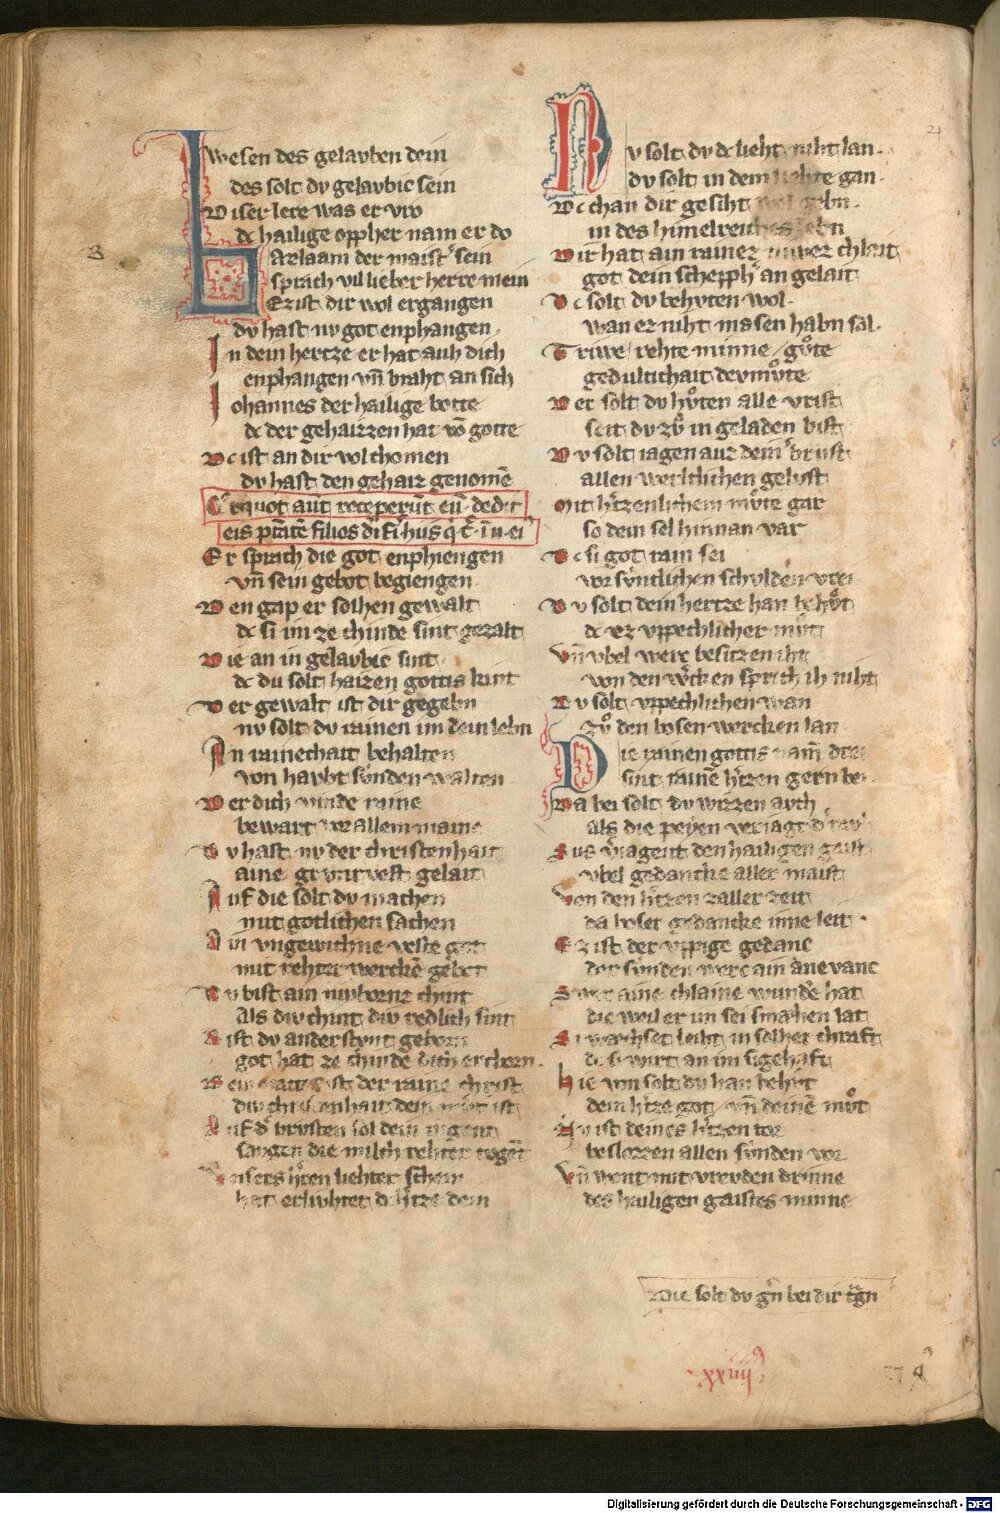 Iwesen des gelavben dein
des solt dv gelavbic sein
Diser lere was er vro
dc hailige oppher nam er do
Barlaam der maist͛ sein
sprach vil lieber herre mein
Ez ist dir wol ergangen
dv hast nv got enphangen
In dein hertze er hat auh dich
enphangen vn̄ braht an sich
Iohannes der hailige botte
dc der gehaizzen hat vō gotte
Dc ist an dir vol chomen
dv hast den gehaiz genomē
aūt receperūt eū dedit
eis filios
Er sprach die got enphiengen
vn̄ sein gebot begiengen
Den gap er solhen gewalt
dc si im ze chinde sint gezalt
Die an in gelavbic sint
dc du solt haizen gottis kint
Der gewalt ist dir gegebn
nv solt dv rainen im dein lebn
An rainechait behalten
von havbt sv̊nden walten
Der dich machte raine
bewart vor allem maine
Dv hast nv der christenhait
aine grvntvest gelait
Auf die solt dv machen
mit gotlichen sachen
Ain vngewichne veste got
mit rehter werckē gebot
Dv bist ain nivbornz chint
Als div chint div redlich sint
ist dv anderstvnt geborn
got hat ze chinde dich erchorn
ist der raine christ
div christenhait dein ist
Auf d͛ brvsten sol dein ivgent
savgen die milch rehter tvgēt
Vnsers h͛ren liehter schein
hat erlivhtet dc h͛tze dein
Nv solt dv dc lieht niht lan
dv solt in dem liehte gan
Dc chan dir gesiht wol gebn
in des himelreiches lebn
Dir hat ain rainez chlait
got dein scheph͛ an gelait
Dc solt dv behvten wol
wan ez niht masen habn sol
Triwe rehte minne gv̊te
gedultichait devmv̊te
Der solt dv hv̊ten alle vrist
seit dv zv̊ in geladen bist
Dv solt iagen auz dein͛ brust
allen werltlichen gelust
Mit h͛tzenlichem mv̊te gar
so dem sel hinnan var
Dc si got rain sei
vor svntlichen schvlden vrei
Dv solt dein hertze han behv̊t
dc ez vppechlicher mv̊t
Vn̄ vbel werc besitzen iht
von den w͛cken sprich ih niht
Dv solt vppechlichen wan
zv̊ den bosen wercken lan
Die rainen gottis nam̄ drei
sint rainē h͛tzen gern bei
Da bei solt dv wizzen avch
als die peyen veriagt d͛ ravch
Sus v͛iagent den hailigen geist
vbel gedancke aller maist
Von den h͛tzen zaller zeit
da boser gedancke inne leit
Ez ist der vppige gedanc
der svnden werc ain anevanc
Swer aine chlaine wunde hat
die weil er im sei smahen lat
Si wachset leiht in solher chraft
dc si wirt an im sigehaft
Hie von solt dv han behv̊t
dein h͛tze got vn̄ deinē mv̊t
Nv ist deines h͛tzen tor
beslozzen allen svnden vor
Vn̄ wont mit vrevden drinne
des hailigen gaistes minne
Die solt dv g͛n bei dir tragn
xxiiij
Digitalisierung gefördert durch die Deutsche Forschungsgemeinschaft - DFG